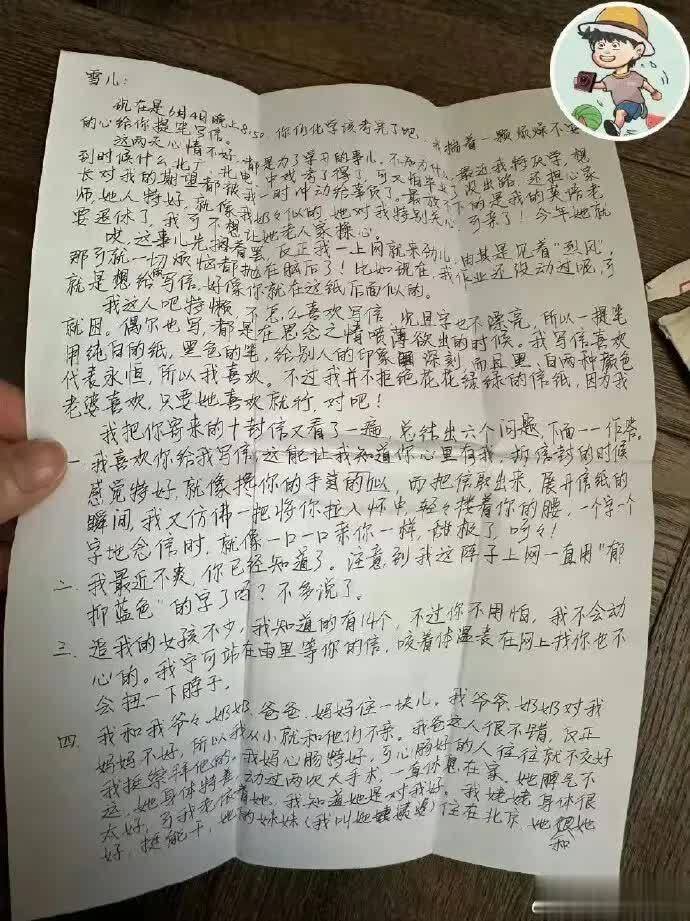 雪儿：
现在是6月4日晚上8:50 你们化学该考完了吧，我揣着一颗烦燥不安
的心给你提笔写信。
这两天心情不好，都是为了学习的事儿，不知为什么，最近我特厌学，想
到时候什么北广、北电、中戏考了得了，可又怕毕业了没出路，还担心家
长对我的期望都被我一时冲动给辜负了。最放不下的是我的英语老
师，她人特好，就像我奶奶似的，她对我特别关心，可亲了！今年她就
要退休了，我可不想让她老人家操心。
哎，这事儿先搁着罢，反正我一上网就来劲儿，由其是见着"烈风"，
那可就一切烦恼都抛在脑后了！比如现在，我作业还没动过呢，可
就是想给你写信，好像你就在这纸后面似的。
我这人吧特懒，不怎么喜欢写信，况且字也不漂亮，所以一提笔
就困。偶尔也写，都是在思念之情喷薄欲出的时候。我写信喜欢
用纯白的纸，黑色的笔，给别人的印象深刻，而且黑、白两种颜色
代表永恒，所以我喜欢。不过我并不拒绝花花绿绿的信纸，因为我
老婆喜欢，只要她喜欢就行，对吧！
我把你寄来的十封信又看了一遍，总结出六个问题，下面一一作答。
一、我喜欢你给我写信，这能让我知道你心里有我，拆信封的时候
感觉特好，就像搀你的手道的似，而把信取出来，展开信纸的
瞬间，我又仿佛一把将你拉入怀中，轻々搂着你的腰，一字一个
字地念信时，就像一口一口亲你一样，甜极了，呵々！
二、我最近不爽，你已经知道了。注意到我这阵子上网一直用"郁
抑蓝色"的字了吗？不多说了。
三、追我的女孩不少，我知道的有14个，不过你不用怕，我不会动
心的。我宁可站在雨里等你的信，咬着体温表在网上找你也不
会扭一下脖子。
四、我和我爷々、奶奶、爸爸、妈妈住一块儿，我爷爷、奶奶对我
妈妈不好，所以我从小就和他们不亲。我爸这人很不错，反正
我挺崇拜他的。我妈心肠特好，可心肠好的人往往就不交好
运，她身体特差，动过两次大手术，一直休息在家。她脾气不
太好，可我老依着她，我知道她是对我好。我姥姥身体很
好，挺能干，她的妹妹（我叫她姨姥）住在北京，她
和她